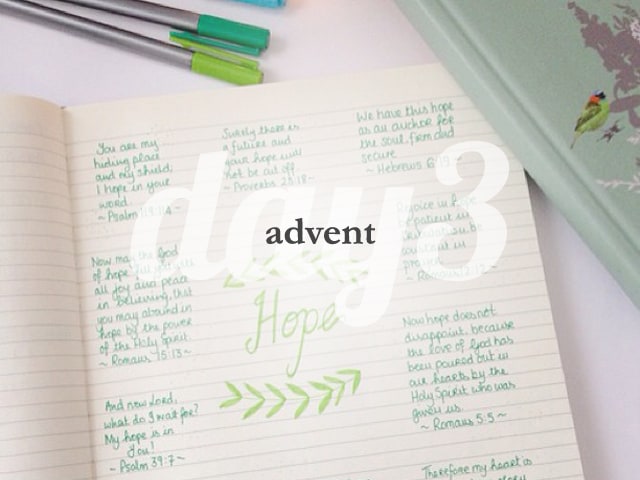 day 3
advent
You are my
hiding place
and my shield;
I hope in your
word.
~ Psalm
Surely there is
a future and
your hope will
not be cut off
~ Proverbs 23:18~
We have this hope
as an anchor for
the soul, firm and
secure
~ Hebrews 6:19 ~
Rejoice in hope
be patient in
constant in
prayer
~ Romans 12:12 ~
Now may the God
of hope fill you with
all joy and peace
in believing, that
you may abound in
hope by the power
of the Holy Spirit.
~ Romans 15:13~
Hope
Now hope does not
disappoint, because
the love of God has
been poured out in
our hearts by the
Holy Spirit who was
given us.
~ Romans 5:5 ~
And now Lord,
what do I wait for?
My hope is in
You!
~ Psalm 39:7 ~
Therefore my heart is